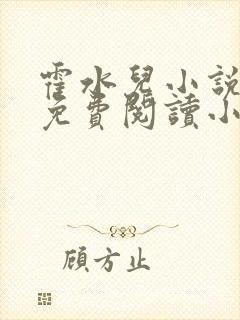 霍水兒小說
免費閱讀小
顧方止